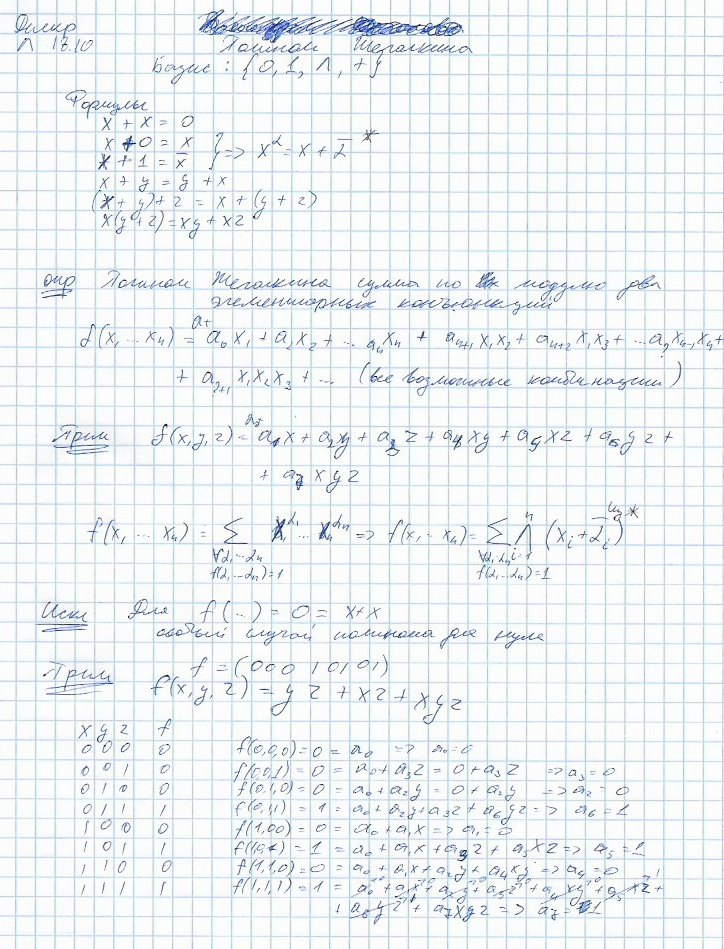 Дискр
Л 13.10
Полином Жегалкина
Базис : {0, 1, ∧, +}
Формулы
x + x = 0
x + 0 = x
x + 1 = x̄ } => x^α = x + ᾱ *
x + y = y + x
(x + y) + z = x + (y + z)
x(y + z) = xy + xz
опр Полином Жегалкина сумма по модулю два
элементарных конъюнкций
f(x₁ ... xₙ) = a+ a₀x₁ + a₂x₂ + ... aₙxₙ + aₙ₊₁x₁x₂ + aₙ₊₂x₁x₃ + ... a₂xₙ₋₁xₙ +
+ a₂₊₁ x₁x₂x₃ + ... (все возможные комбинации)
Прим f(x, y, z) = a₀+ a₁x + a₂y + a₃z + a₄xy + a₅xz + a₆yz +
+ a₇xyz
f(x₁ ... xₙ) = ∑ x₁^α₁ ... xₙ^αₙ => f(x₁ .. xₙ) = ∑ ∧ (xᵢ + ᾱᵢ) *
∀α₁...αₙ ∀α₁..αₙ i=1 n
f(α₁...αₙ)=1 f(α₁...αₙ)=1
Искл Для f(...) = 0 = x+x
особый случай полинома для нуля
Прим f = (00010101)
f(x, y, z) = yz + xz + xyz
x y z f
0 0 0 0 f(0,0,0) = 0 = a₀ => a₀ = 0
0 0 1 0 f(0,0,1) = 0 = a₀ + a₃z = 0 + a₃z => a₃ = 0
0 1 0 0 f(0,1,0) = 0 = a₀ + a₂y = 0 + a₂y => a₂ = 0
0 1 1 1 f(0,1,1) = 1 = a₀ + a₂y + a₃z + a₆yz => a₆ = 1
1 0 0 0 f(1,0,0) = 0 = a₀ + a₁x => a₁ = 0
1 0 1 1 f(1,0,1) = 1 = a₀ + a₁x + a₃z + a₅xz => a₅ = 1
1 1 0 0 f(1,1,0) = 0 = a₀ + a₁x + a₂y + a₄xy => a₄ = 0
1 1 1 1 f(1,1,1) = 1 = a₀ + a₁x + a₂y + a₃z + a₄xy + a₅xz +
+ a₆yz + a₇xyz => a₇ = 1